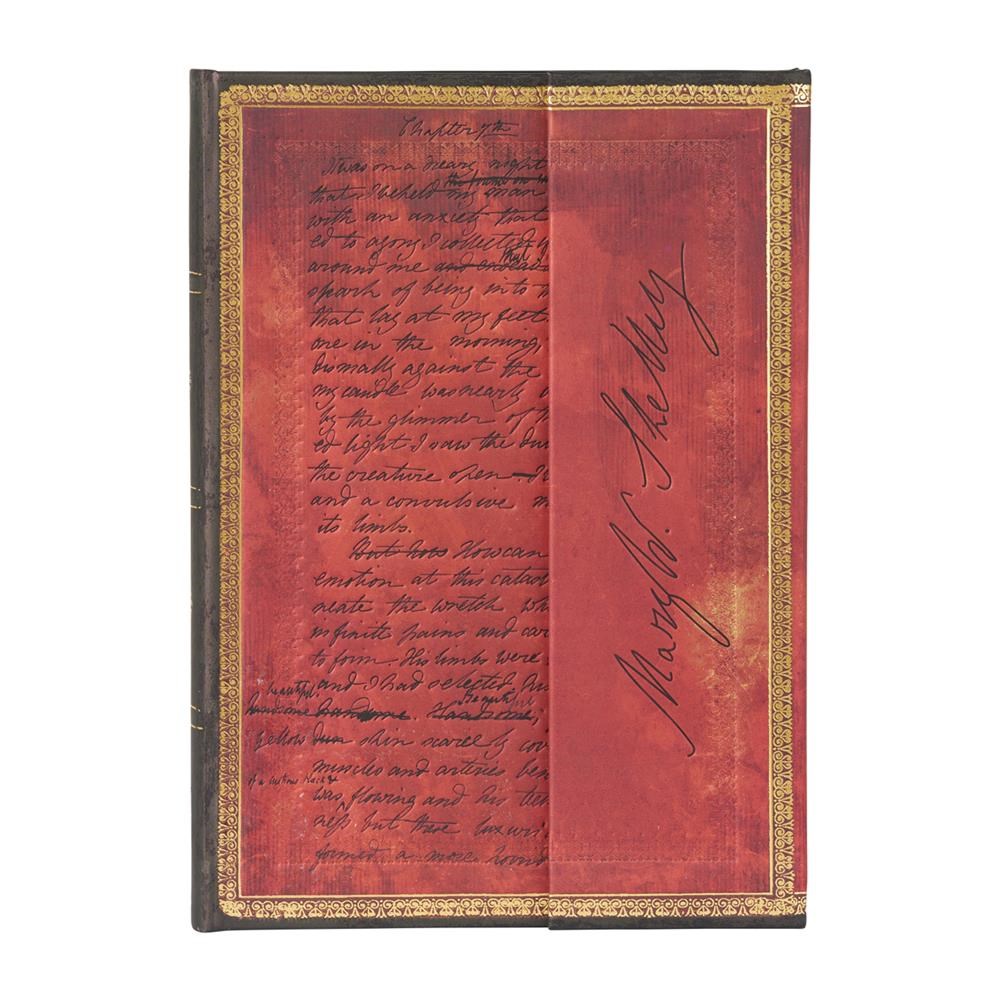 Chapter 7th
It was on a dreary night
the frame on
that I beheld my man
with an anxiety that
ed to agony I collected
that
around me and endea
spark of being into
that lay at my feet
one in the morning,
dismally against the
my candle was nearly
by the glimmer of
ed light I saw the du
the creature open
and a convulsive m
its limbs.
But how How can
emotion at this catas
neate the wretch wh
infinite pains and car
to form. His limbs were
and I had selected his
beautiful. Beautiful
handsome handsome. Handsome;
yellow dun skin scarcely cov
muscles and arteries ben
of a lustrous black &
was flowing and his tee
neſs but these luxuri
formed a more horrid
Mary W. Shelley